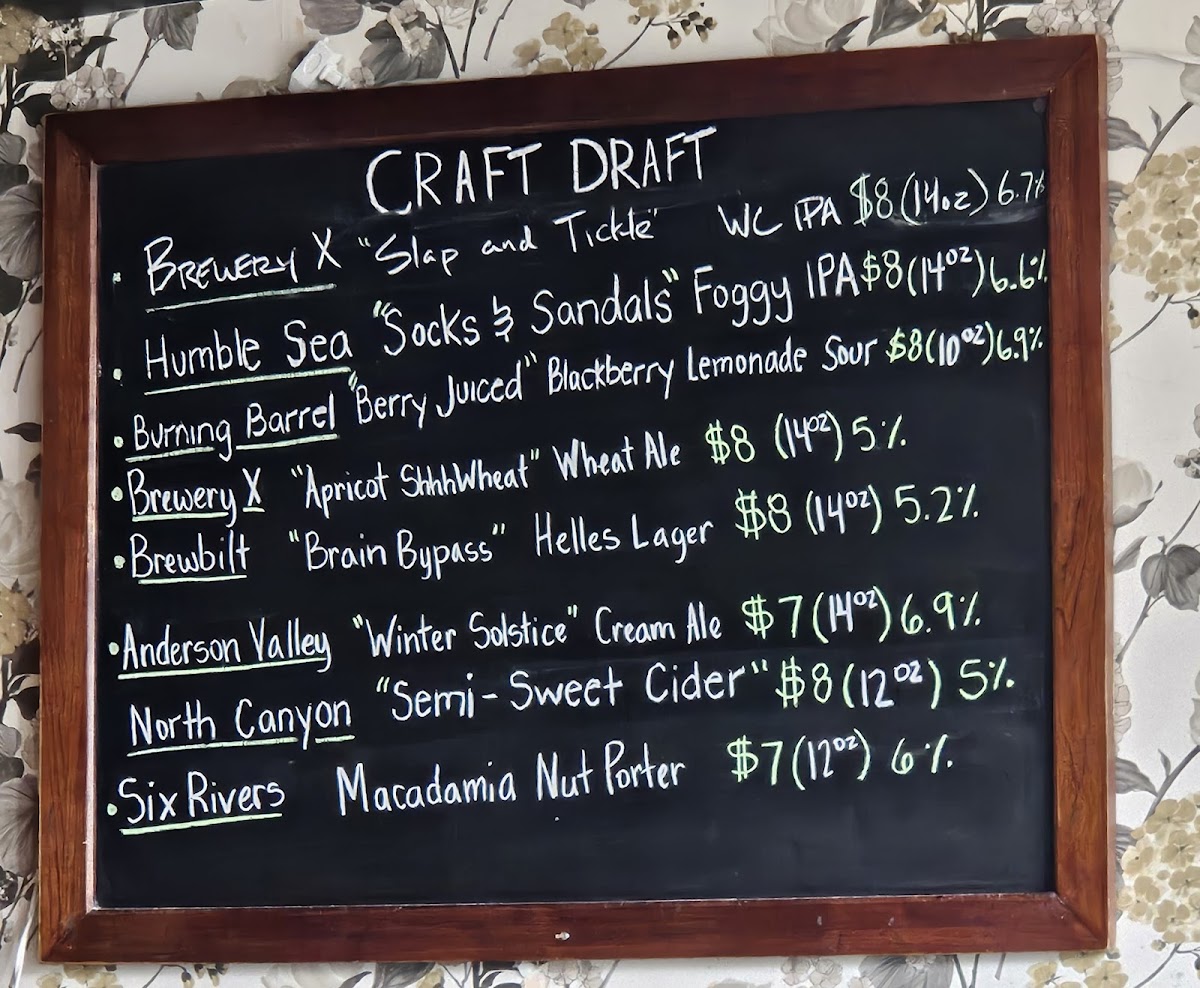 CRAFT DRAFT
• BREWERY X "Slap and Tickle" WC IPA $8 (14oz) 6.7%
• Humble Sea "Socks & Sandals" Foggy IPA $8 (14oz) 6.6%
• Burning Barrel "Berry Juiced" Blackberry Lemonade Sour $8 (10oz) 6.9%
• Brewery X "Apricot ShhhWheat" Wheat Ale $8 (14oz) 5%
• Brewbilt "Brain Bypass" Helles Lager $8 (14oz) 5.2%
• Anderson Valley "Winter Solstice" Cream Ale $7 (14oz) 6.9%
North Canyon "Semi-Sweet Cider" $8 (12oz) 5%
• Six Rivers Macadamia Nut Porter $7 (12oz) 6%